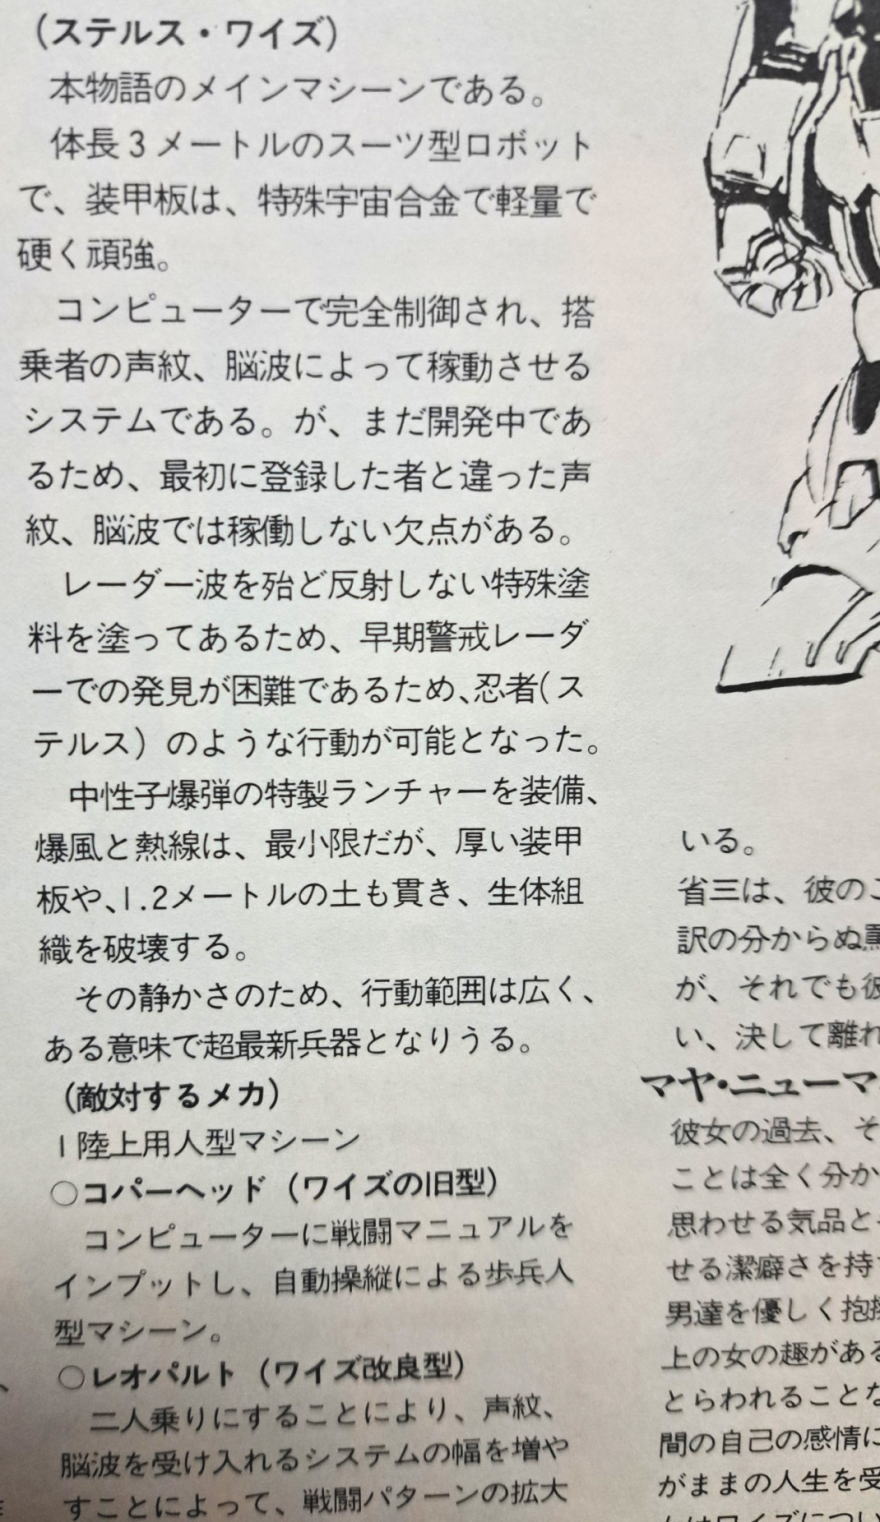 (ステルス・ワイズ)
本物語のメインマシーンである。
体長3メートルのスーツ型ロボット
で、装甲板は、特殊宇宙合金で軽量で
硬く頑強。
コンピューターで完全制御され、搭
乗者の声紋、脳波によって稼動させる
システムである。が、まだ開発中であ
るため、最初に登録した者と違った声
紋、脳波では稼働しない欠点がある。
レーダー波を殆ど反射しない特殊塗
料を塗ってあるため、早期警戒レーダ
ーでの発見が困難であるため、忍者(ス
テルス)のような行動が可能となった。
中性子爆弾の特製ランチャーを装備、
爆風と熱線は、最小限だが、厚い装甲
板や、1.2メートルの土も貫き、生体組
織を破壊する。
その静かさのため、行動範囲は広く、
ある意味で超最新兵器となりうる。
(敵対するメカ)
1陸上用人型マシーン
○コパーヘッド(ワイズの旧型)
コンピューターに戦闘マニュアルを
インプットし、自動操縦による歩兵人
型マシーン。
○レオパルト(ワイズ改良型)
二人乗りにすることにより、声紋、
脳波を受け入れるシステムの幅を増や
すことによって、戦闘パターンの拡大
いる。
省三は、彼のこ
訳の分からぬ
が、それでも彼
い、決して離れ
マヤ・ニューマ
彼女の過去、そ
ことは全く分か
思わせる気品と
せる潔癖さを持
男達を優しく抱
上の女の趣がある
とらわれることな
間の自己の感情に
がままの人生を受